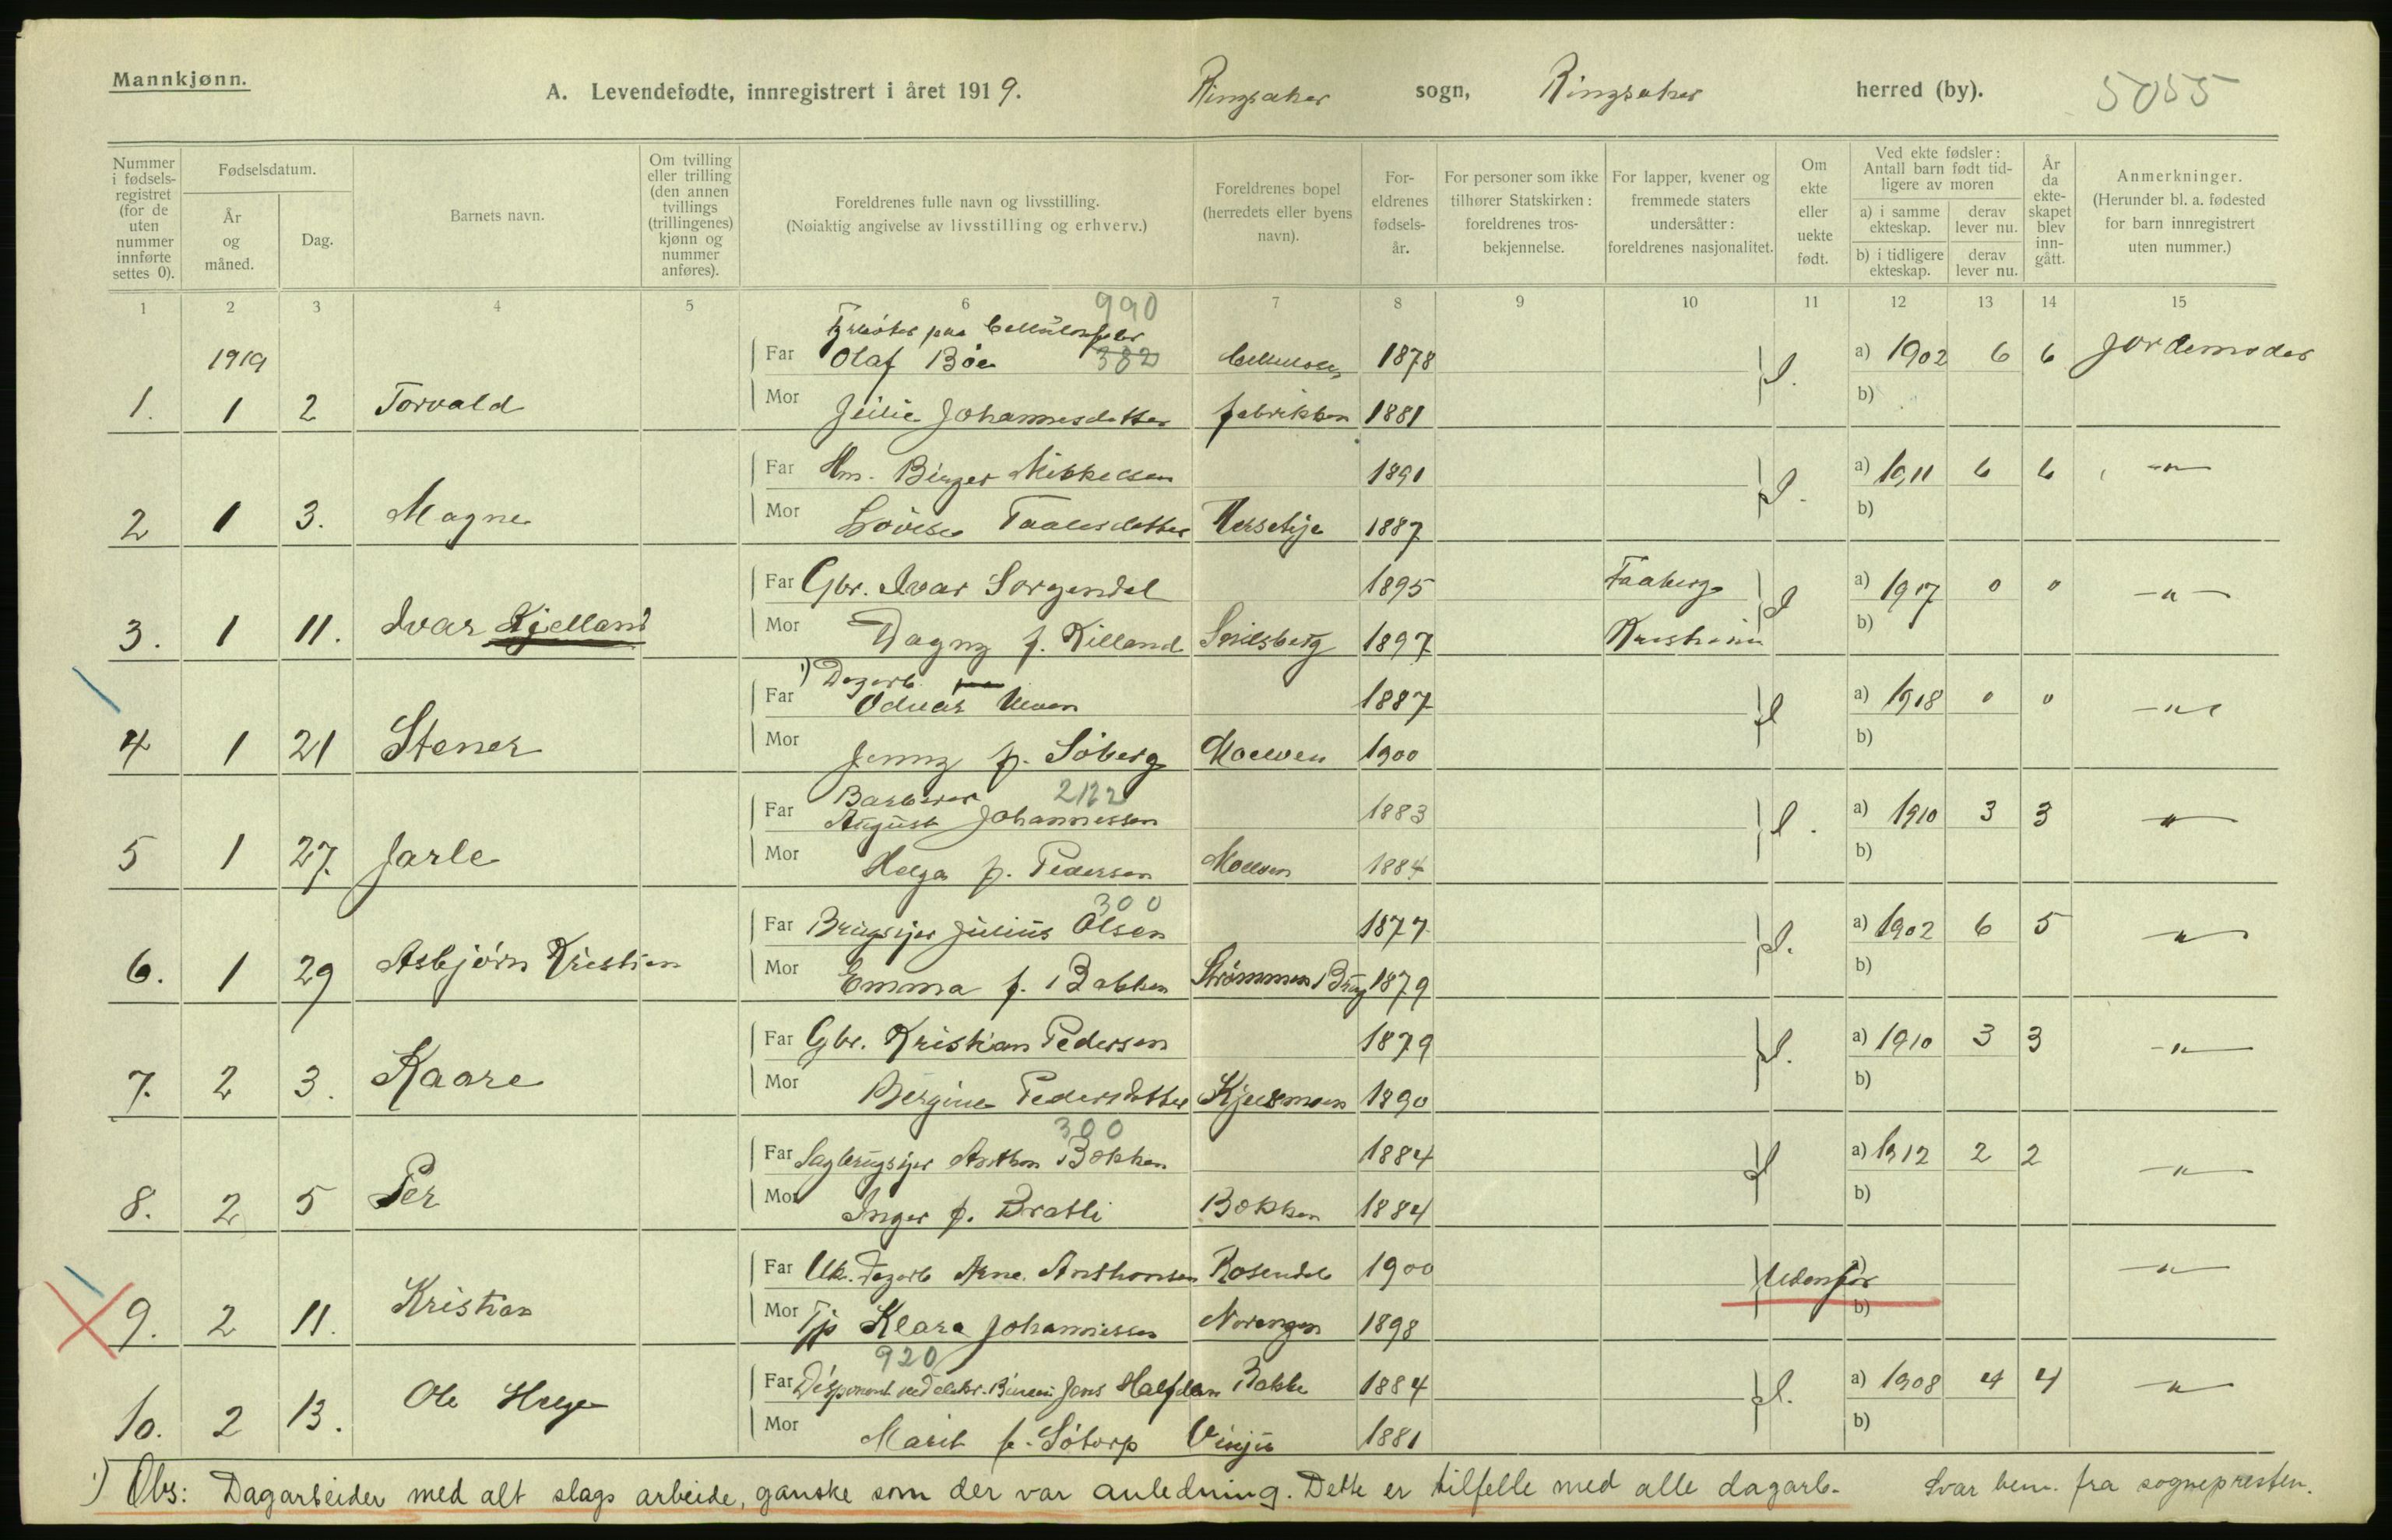 Mannkjønn.
A. Levendefødte, innregistrert i året 1919. Ringsaker sogn, Ringsaker herred (by). 5055
Nummer i fødselsregistret (for de uten nummer innførte settes 0).
Fødselsdatum.
År og måned.
Dag.
Barnets navn.
Om tvilling eller trilling (den annen tvillings (trillingenes) kjønn og nummer anføres).
Foreldrenes fulle navn og livsstilling.
(Nøiaktig angivelse av livsstilling og erhverv.)
Foreldrenes bopel (herredets eller byens navn).
Foreldrenes fødselsår.
For personer som ikke tilhører Statskirken: foreldrenes trosbekjennelse.
For lapper, kvener og fremmede staters undersåtter: foreldrenes nasjonalitet.
Om ekte eller uekte født.
Ved ekte fødsler: Antall barn født tidligere av moren
a) i samme ekteskap. derav lever nu.
b) i tidligere ekteskap. derav lever nu.
År da ekteskapet blev inngått.
Anmerkninger.
(Herunder bl. a. fødested for barn innregistrert uten nummer.)
1 2 3 4 5 6 7 8 9 10 11 12 13 14 15
990
Fyrbøter paa
1919 Far Olaf Bøe 382 1878 a) 1902 6 6 Jordemoder
1. 1 2 Torvald Mor Julie Johannesdatter fabrikken 1881 b)
Far Hm. Birger Mikkelsen 1891 a) 1911 6 6 -"-
2 1 3. Magne Mor Lovise Taalesdatter 1887 b)
Far Gbr. Ivar Sorgendal 1895 Faaberg a) 1917 0 0 -"-
3. 1 11. Ivar Kjelland Mor Dagny f. Killand Smilsberg 1897 b)
1) Dagarb.
Far 1887 a) 1918 0 0 -"-
4 1 21 Stener Mor Jenny f. Søberg Moelven 1900 b)
Barberer 2122
Far August Johannessen 1883 a) 1910 3 3 -"-
5 1 27. Jarle Mor Helga f. Pedersen Moelven 1884 b)
300
Far Brugsejer Julius Olsen 1877 a) 1902 6 5 -"-
6. 1 29 Asbjørn Kristian Mor Emma f. Bakken Strømmen Brug 1879 b)
Far Gbr. Kristian Pedersen 1879 a) 1910 3 3 -"-
7. 2 3. Kaare Mor Bergine Pedersdatter 1890 b)
300
Far Sagbrugsejer Anthon Bakken 1884 a) 1912 2 2 -"-
8. 2 5 Per Mor Inger f. Bratli Bakken 1884 b)
Far Uk. Dagarb Arne Anthonsen Rosendal 1900 Udenfor a) -"-
9. 2 11. Kristian Mor Tjp Klara Johannessen Norengen 1898 b)
920
Far Disponent ved elektr. Jens Halfdan Bakke 1884 a) 1908 4 4 -"-
10. 2 13. Ole Helge Mor Marit f. Søtorp 1881 b)
1) Obs: Dagarbeider med alt slags arbeide, ganske som der var anledning. Dette er tilfelle med alle dagarb. Svar hem. fra sognepresten.